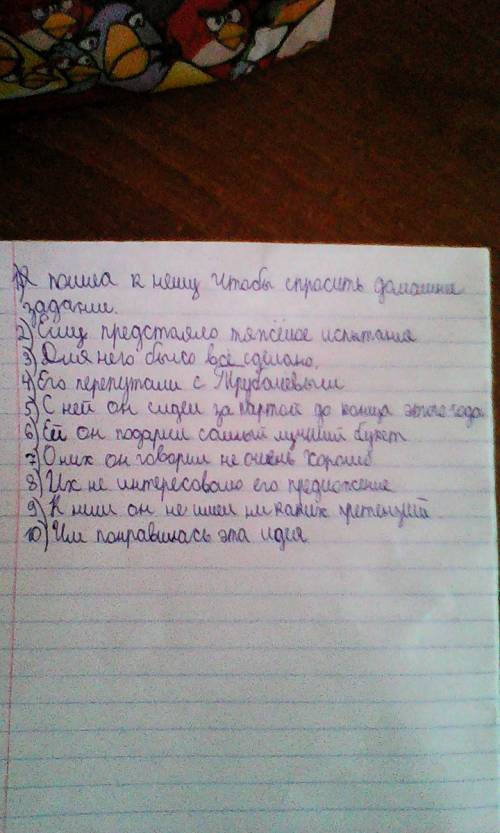 1) Я пошла к нему чтобы спросить домашнее
задание.
2) Ему предстаяло тяжёлое испытания
3) Для него было всё сделано.
4) Его перепутали с Трубачевыми
5) С ней он сидел за партой до конца этого года
6) Ей он подарил самый лучший букет
7) О них он говорил не очень хорошо
8) Их не интересовало его предложение
9) К ним он не имел ни каких претензий
10) Им понравилась эта идея